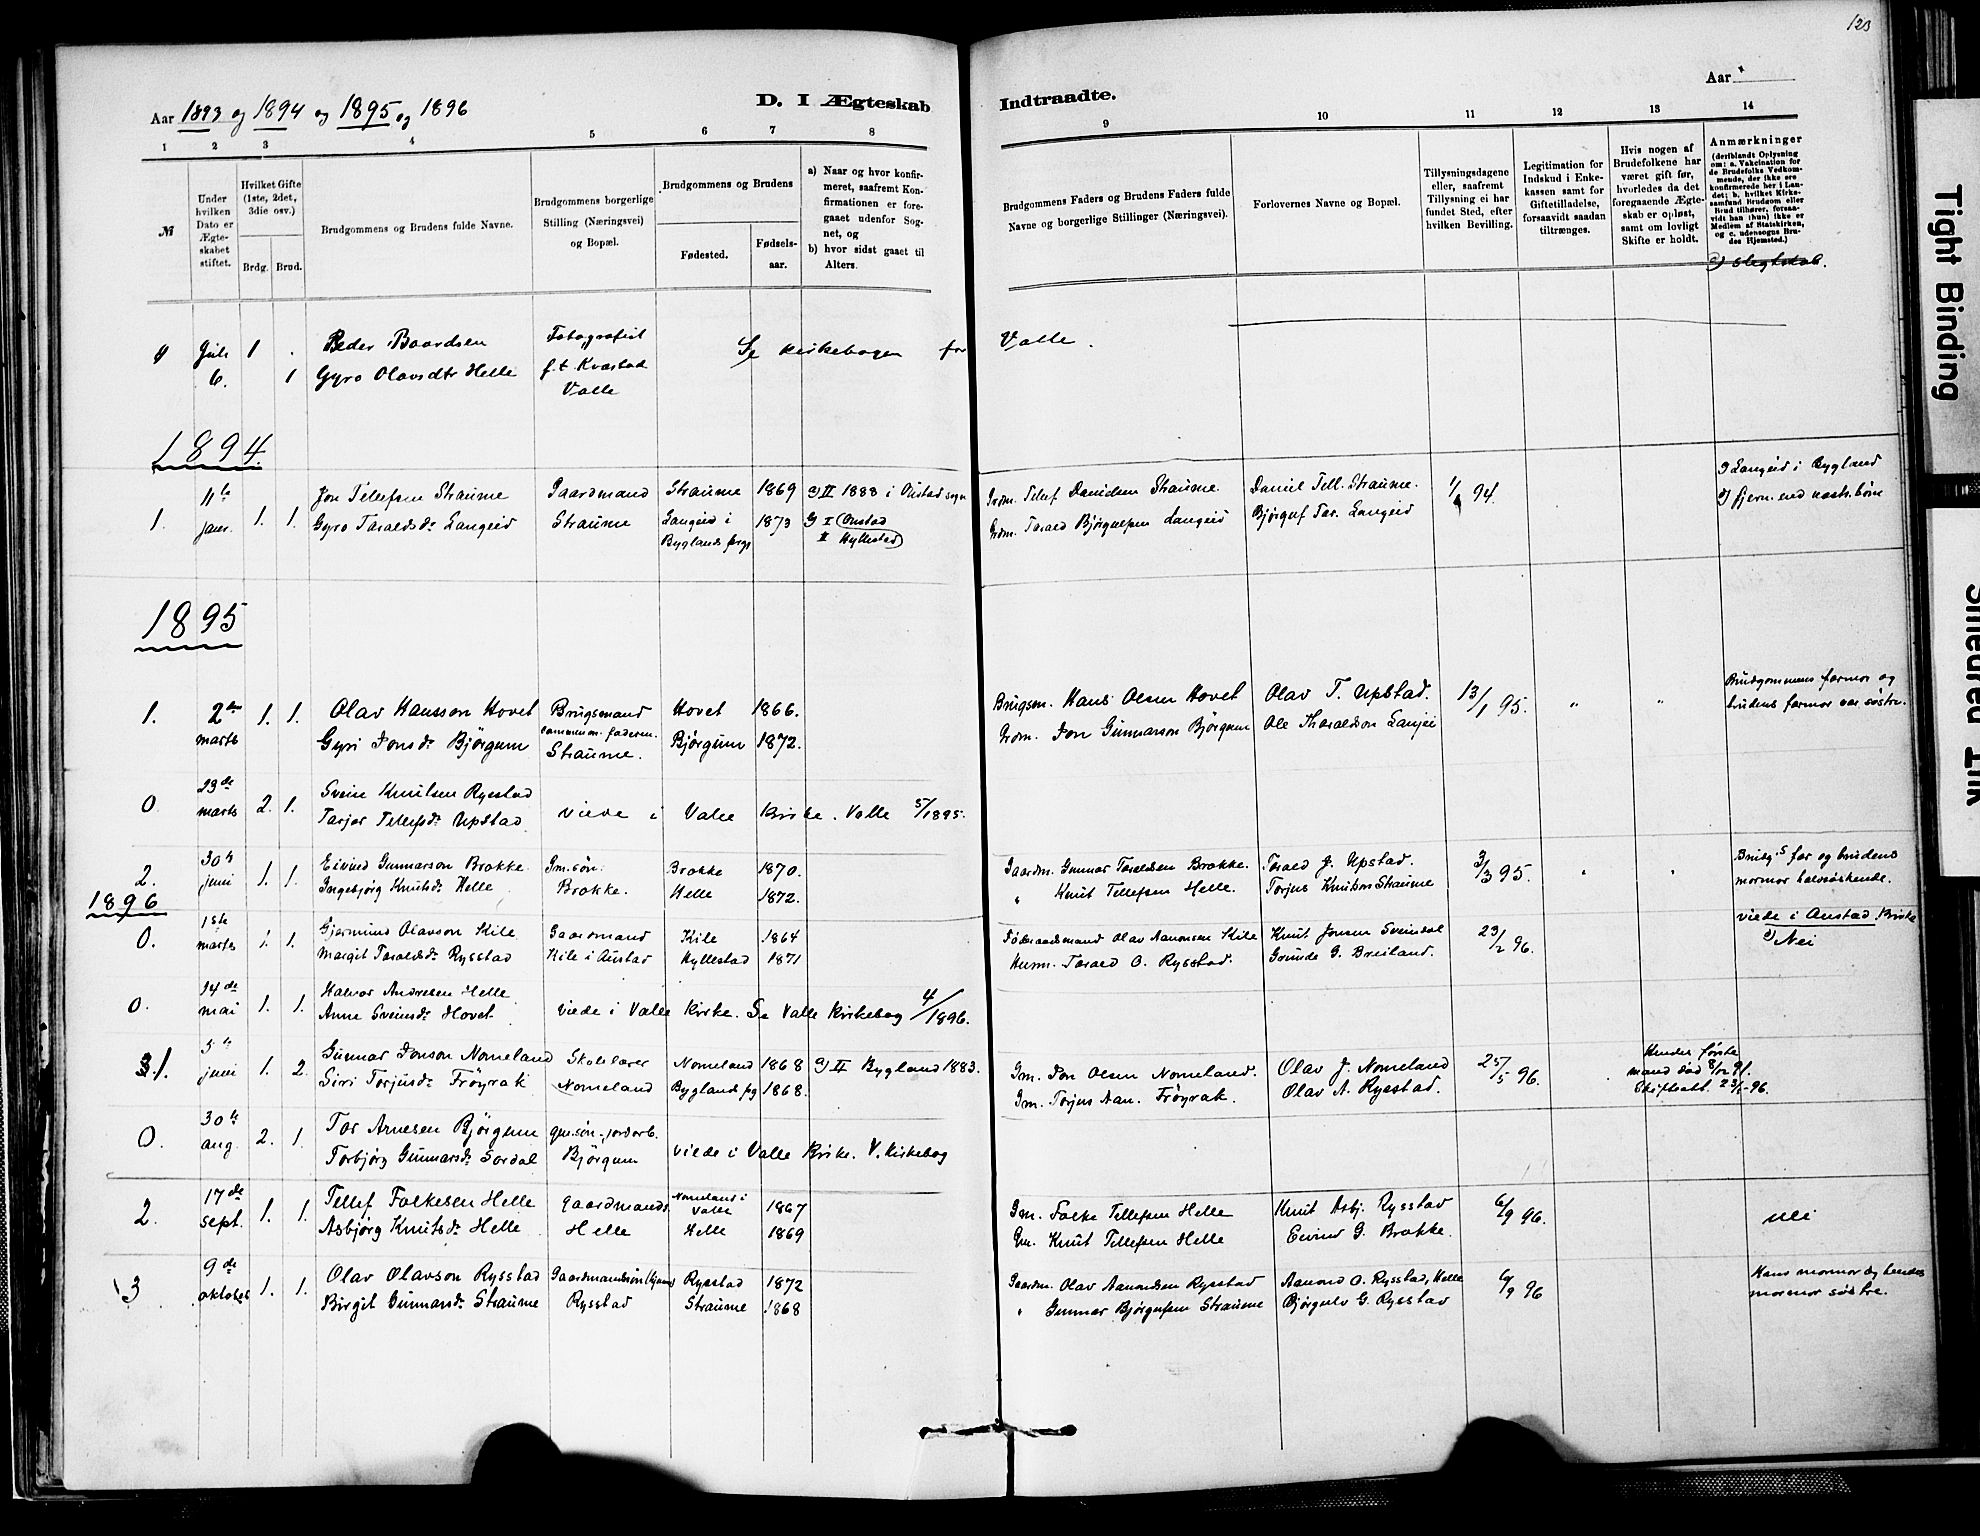 123
Aar 1893 og 1894 og 1895 og 1896
D. I Ægteskab Indtraadte.
Aar
1 2 3 4 5 6 7 8 9 10 11 12 13 14
№
Under hvilken Dato er Ægteskabet stiftet.
Hvilket Gifte (1ste, 2det, 3die osv.)
Brdg. Brud.
Brudgommens og Brudens fulde Navne.
Brudgommens borgerlige Stilling (Næringsvei) og Bopæl.
Brudgommens og Brudens
Fødested.
Fødselsaar.
a) Naar og hvor konfirmeret, saafremt Konfirmationen er foregaaet udenfor Sognet, og
b) hvor sidst gaaet til Alters.
Brudgommens Faders og Brudens Faders fulde Navne og borgerlige Stillinger (Næringsvei).
Forlovernes Navne og Bopæl.
Tillysningsdagene eller, saafremt Tillysning ei har fundet Sted, efter hvilken Bevilling.
Legitimation for Indskud i Enkekassen samt for Giftetilladelse, forsaavidt saadan tiltrænges.
Hvis nogen af Brudefolkene har været gift før, hvorledes da det foregaaende Ægteskab er opløst, samt om lovligt Skifte er holdt.
Anmærkninger
(deriblandt Oplysning om: a. Vakcination for de Brudefolks Vedkommende, der ikke ere konfirmerede her i Landet; b. hvilket Kirkesamfund Brudgom eller Brud tilhører, forsaavidt han (hun) ikke er Medlem af Statskirken, og c. udensogns Brudes Hjemsted.)
d) slegtskab.
4 Juli 6. 1 Peder Baardsen Fotografist Se kirkebogen for Valle.
1 Gyro Olavsdtr Helle f.t. Kvæstad
Valle
1894.
1. 11te janr. 1. 1. Jon Tellefsen Straume Gaardmand Straume 1869 II 1888 i Østad sogn Grdm. Tellef Danielsen Straume. Daniel Tell. Straume. 94. Langeid i Bygland
Gyro Taraldsdr Langeid Straume Langeid i Byglands prgj 1873 I Østad II Hyllestad Grdm. Tarald Bjørgulfsen Langeid Bjørgulf Tar. Langeid d) fjern. end næsts. børn
1895
1. 2den marts 1. 1. Olav Hansson Hovet Brugsmand Hovet 1866. Brugsm. Hans Olsen Hovet Olav T. Upstad. 13/1 95. " " Brudgommens farmor og
Gyri Jonsdr Bjørgum sammen m. faderen. Straume. Bjørgum 1872. Grdm. Jon Gunnarson Bjørgum Ole Tharaldson Langei brudens farmor var søstre.
0. 23de marts 2. 1. Svein Knutsen Rysstad
Tarjer Tellefsdr Upstad viede i Valle Kirke. Valle 5/1895.
2. 30te juni 1. 1. Eivind Gunnarson Brokke Gm.søn Brokke 1870. Gaardm. Gunnar Taraldsen Brokke. Tarald J. Upstad. 3/3 95. " " Brudg.s far og brudens
Ingebjørg Knutsdr Helle Brokke. Helle 1872. " Knut Tellefsen Helle. Torjus Knutson Straume mormor halvsøskende.
1896
viede i Austad Kirke
0. 1ste marts 1. 1. Gjermund Olavson Kile Gaardmand Kile 1864 Føderaadsmand Olav Aanonsen Kile Knut Jonsen Sveindal 23/2 96. d) Nei
Margit Taraldsdr Rysstad Kile i Austad Hyllestad 1871 Husm. Tarald O. Rysstad. Grunde G. Breiland.
0. 14de mai 1. 1. Halvor Andresen Helle
Anne Sveinsdr Hovet viede i Valle Kirke. Se Valle Kirkebog 4/1896.
31. 5te juni 1. 2. Gunnar Jonson Nomeland Skolelærer Nomeland 1868 II Bygland 1883. Gm. Jon Olsen Nomeland. Olav J. Nomeland 25/5 96. Hendes første
Siri Torjusdr Frøyrak Nomeland Bygland pg 1868. Gm. Torjus Aan. Frøyrak. Olav A. Rysstad. mand død 8/12 91. Skifteatt. 23/5-96.
0. 30te aug. 2. 1. Tor Arnesen Bjørgum gm.søn, jordarb.
Torbjørg Gunnarsdr Sordal Bjørgum viede i Valle Kirke. V. Kirkebog
2. 17de sept. 1. 1. Tellef Folkesen Helle gaardmands. Nomeland i Valle 1867 Gm. Folke Tellefsen Helle Knut Asbj. Rysstad 6/9 96. nei
Asbjørg Knutsdr Helle Helle Helle 1869 Gm. Knut Tellefsen Helle Eivind G. Brokke.
3 9de oktober 1. 1. Olav Olavson Rysstad Gaardmandssøn Rysstad 1872 Gaardm. Olav Aanondsen Rysstad Aanond O. Rysstad, Helle 6/9 96 Hans mormor og hendes
Birgit Gunnarsdr Straume Rysstad Straume 1868 " Gunnar Bjørgufsen Straume Bjørgulv G. Rysstad mormor søstre.
Tight Binding
Smeared Ink